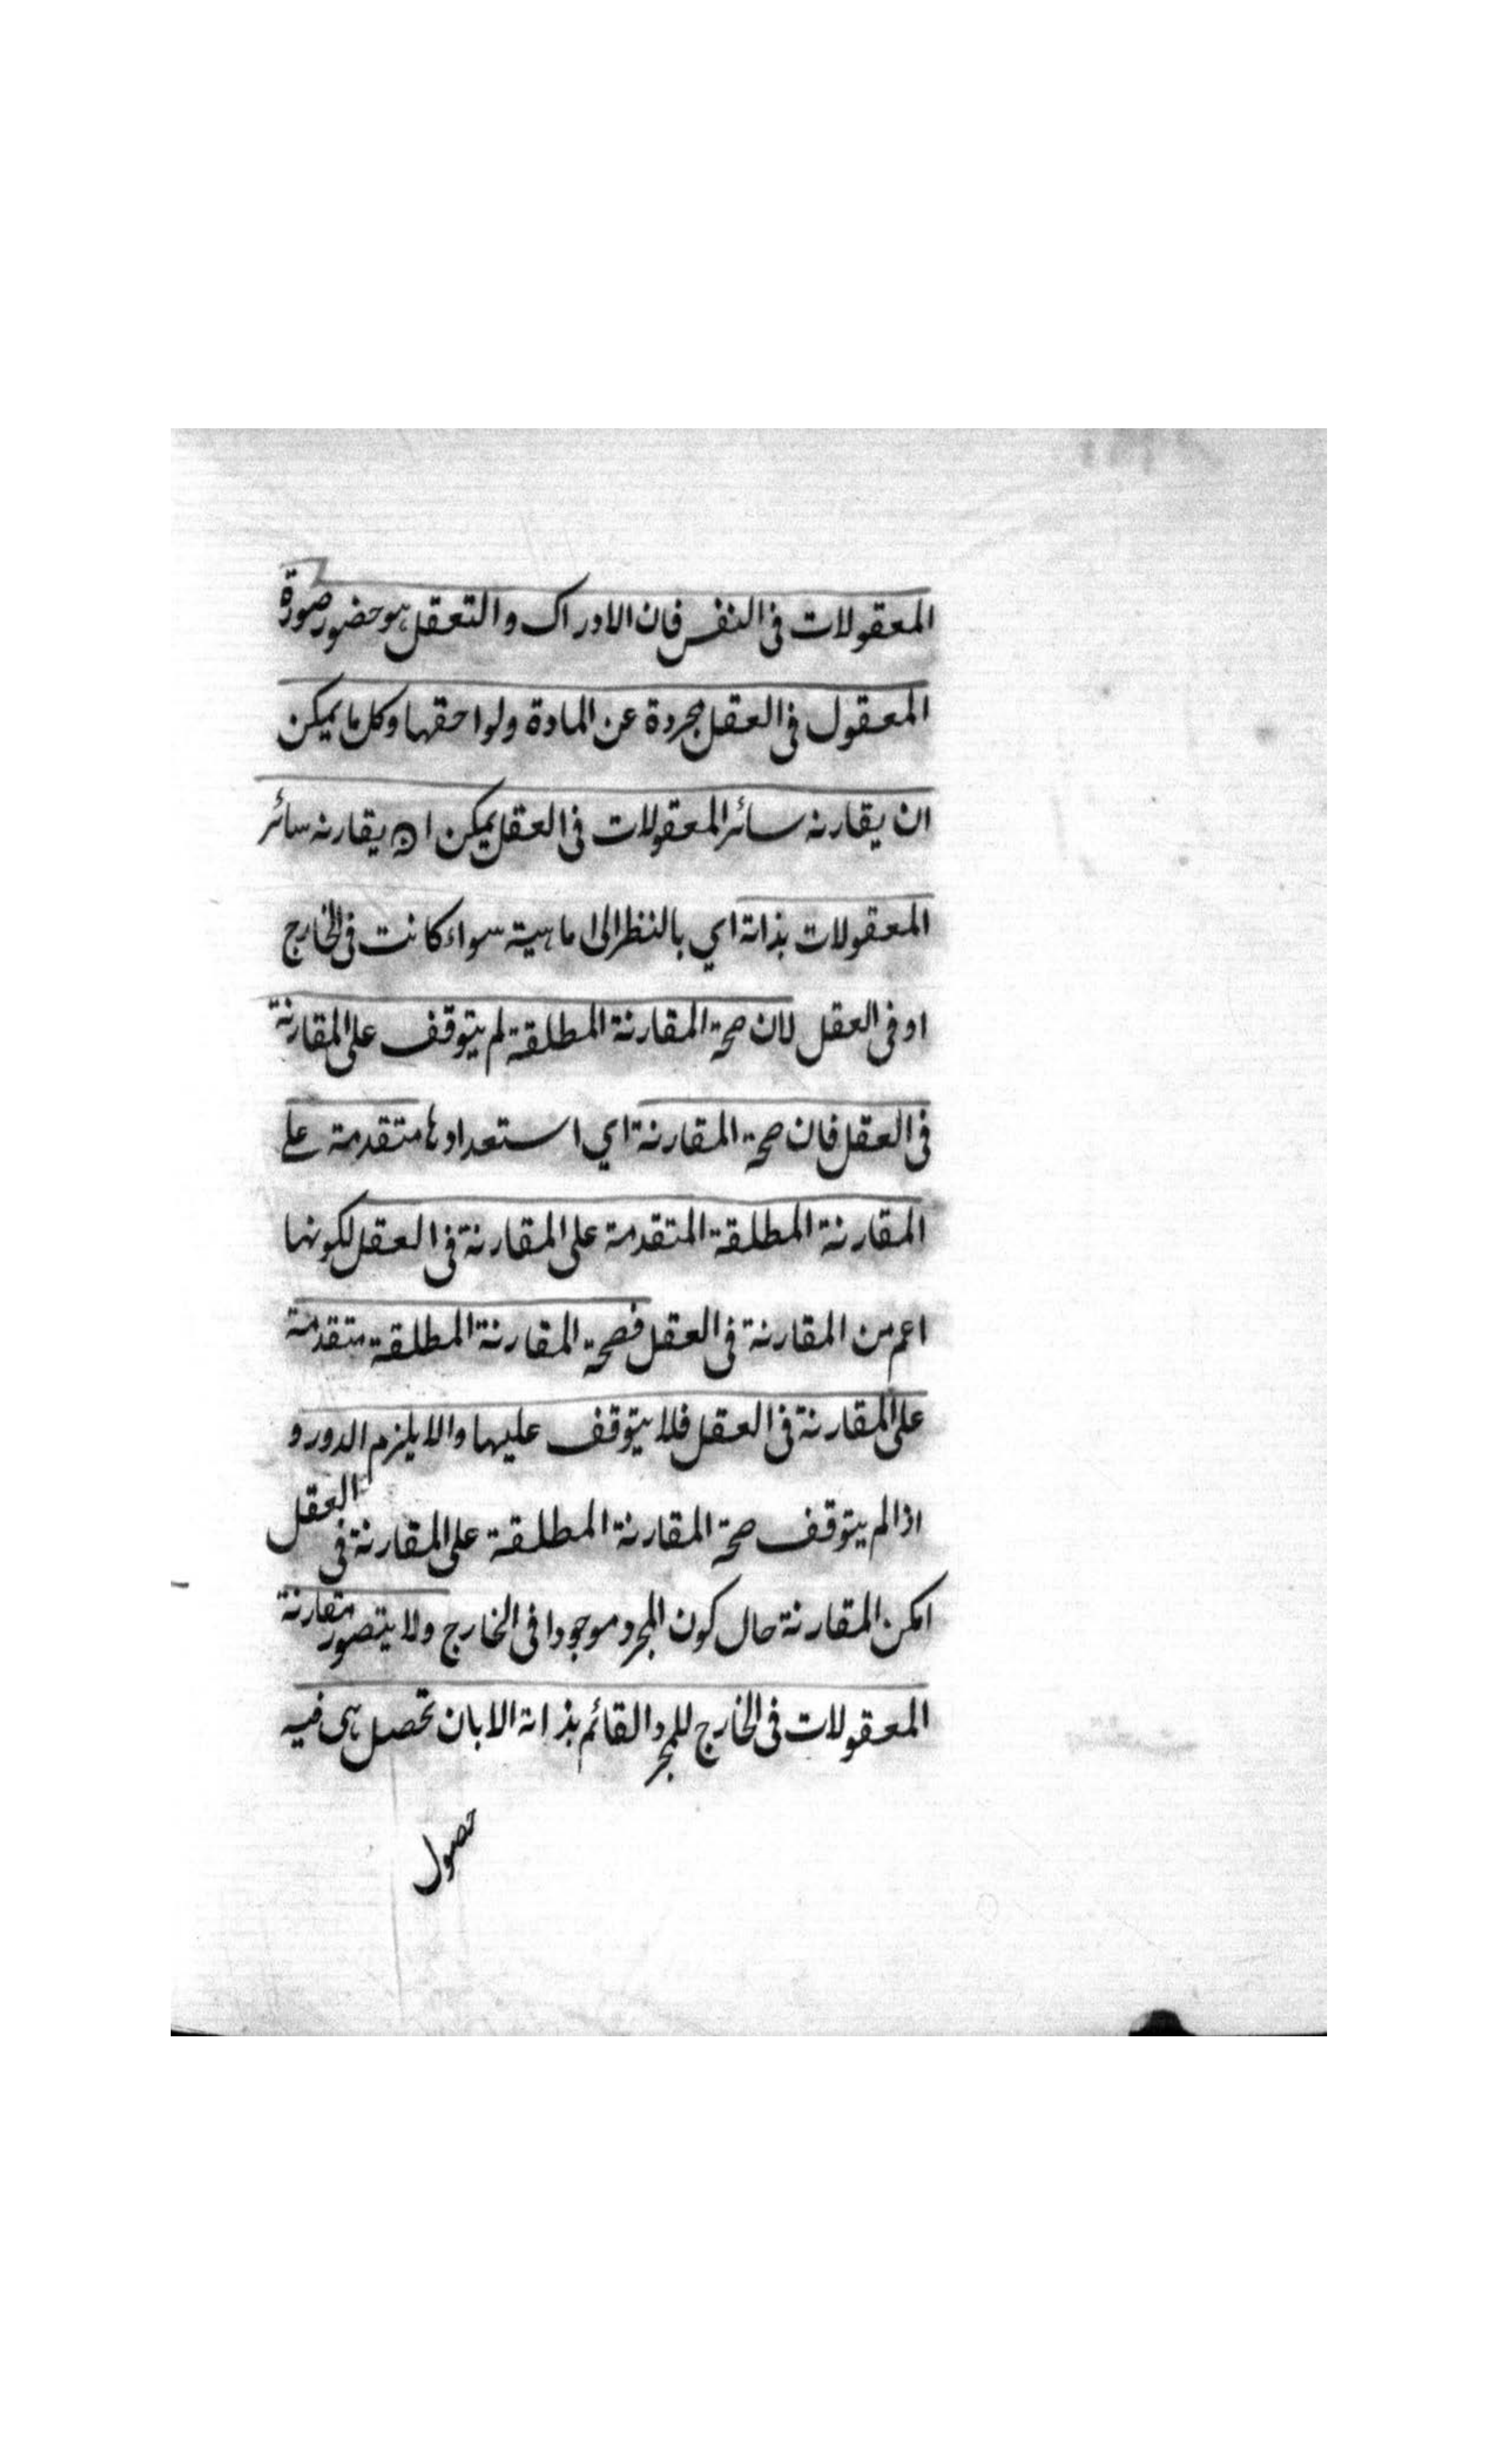 المعقولات فى النفس فان الادراك والتعقل هو حضور صورة
المعقول فى العقل مجردة عن المادة ولواحقها وكل ما يمكن
ان يقارنه سائر المعقولات فى العقل يمكن ان يقارنه سائر
المعقولات بذاته اي بالنظر الى ماهيته سواء كانت فى الخارج
او فى العقل لان صحة المقارنة المطلقة لم يتوقف على المقارنة
فى العقل فان صحة المقارنة اي استعدادها متقدمة على
المقارنة المطلقة المتقدمة على المقارنة فى العقل لكونها
اعم من المقارنة فى العقل فصحة المقارنة المطلقة متقدمة
على المقارنة فى العقل فلا يتوقف عليها والا يلزم الدور و
اذا لم يتوقف صحة المقارنة المطلقة على المقارنة فى العقل
امكن المقارنة حال كون المجرد موجودا فى الخارج ولا يتصور مقارنة
المعقولات فى الخارج للمجرد القائم بذاته الا بان تحصل هى فيه
حصول